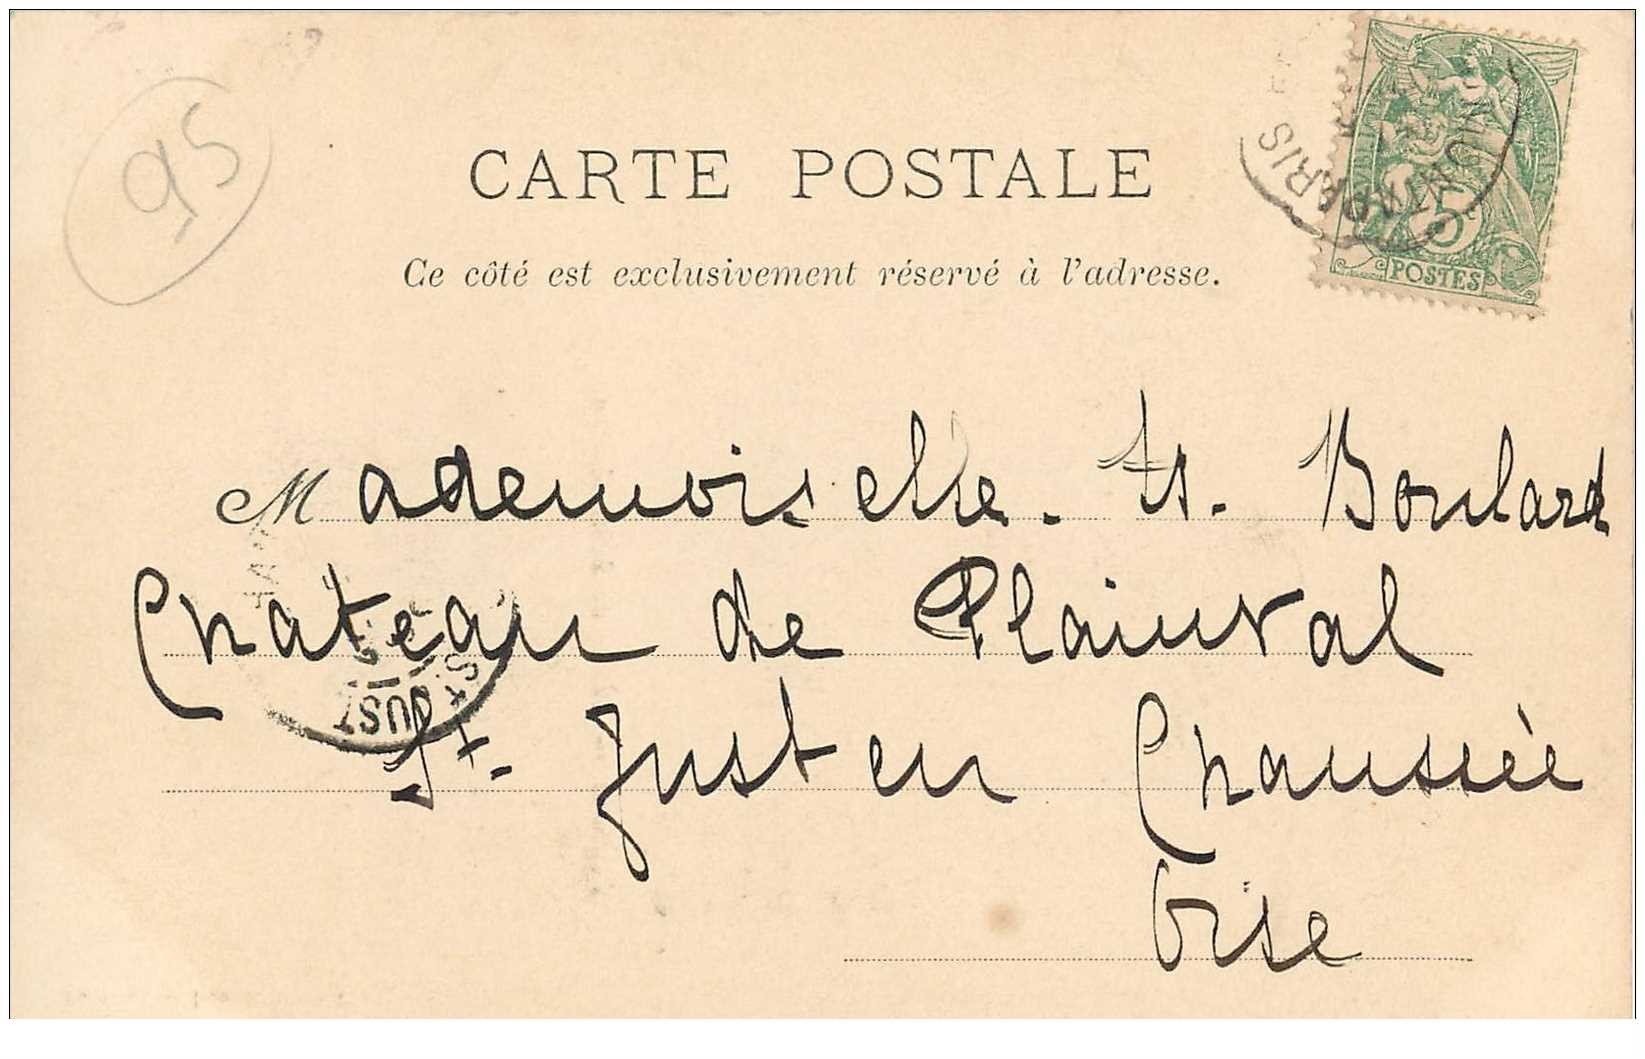 95
CARTE POSTALE
Ce côté est exclusivement réservé à l'adresse.
5c
POSTES
PARIS
PARIS
Mademoiselle. Boulard
Chateau de Plainval
St. Just en Chaussée
Oise
ST JUST